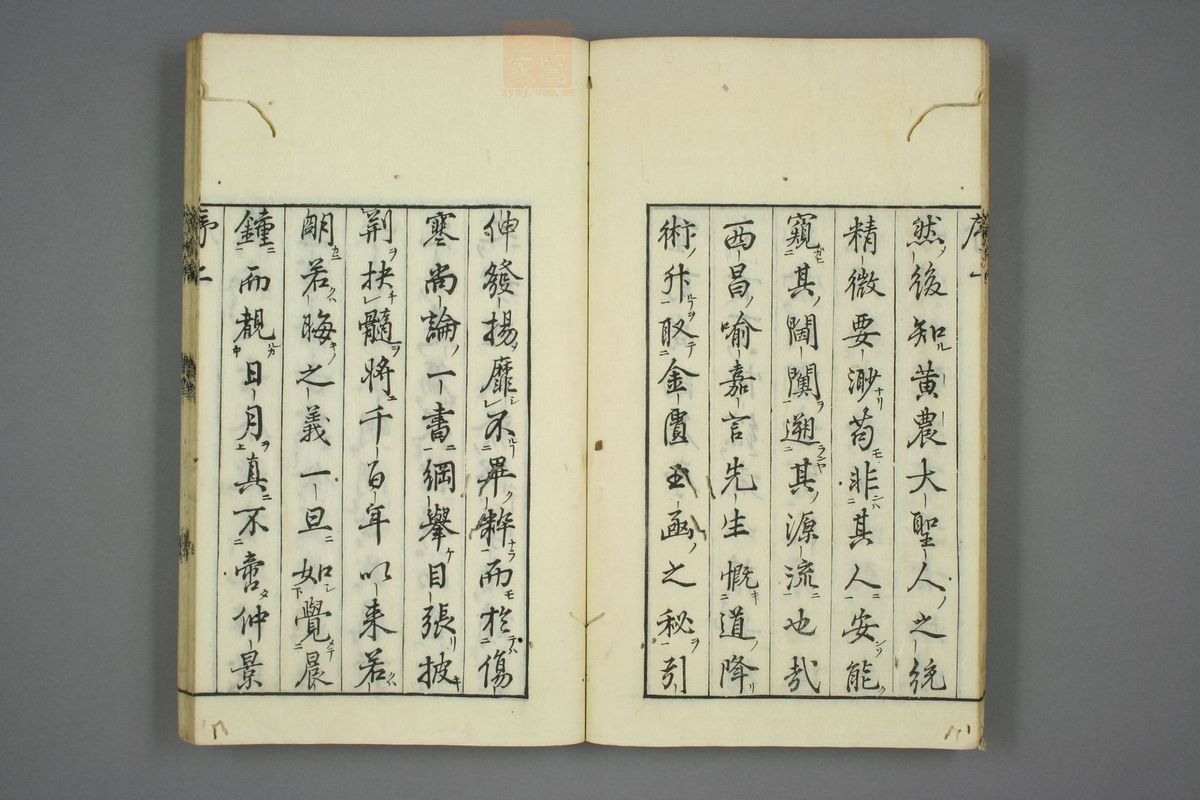 序一
然後知黄農大聖人之統
精微要渺苟非其人安能
窺其閫闑遡其源流也哉
西昌喻嘉言先生慨道降
術升取金匱玉函之秘引
伸發揚靡不畢粹而於傷
寒尚論一書綱擧目張披
荆抉髓將千百年以来若
朙若晦之義一旦如覺晨
鐘而覩日月真不啻仲景
序二